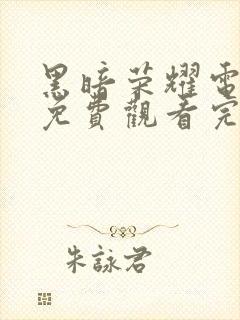 黑暗荣耀電
免費觀看完
朱詠君